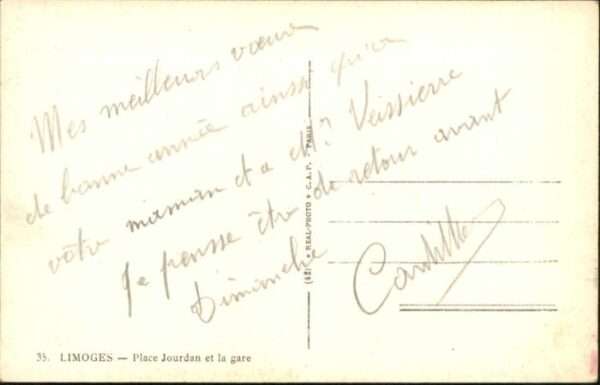 Mes meilleurs vœux
de bonne année ainsi qu'a
votre maman et a et ? Veissierre
Je pensse être de retour avant
Dimanche
(52) ★ REAL-PHOTO ★ C.A.P. ★ PARIS
35. LIMOGES — Place Jourdan et la gare